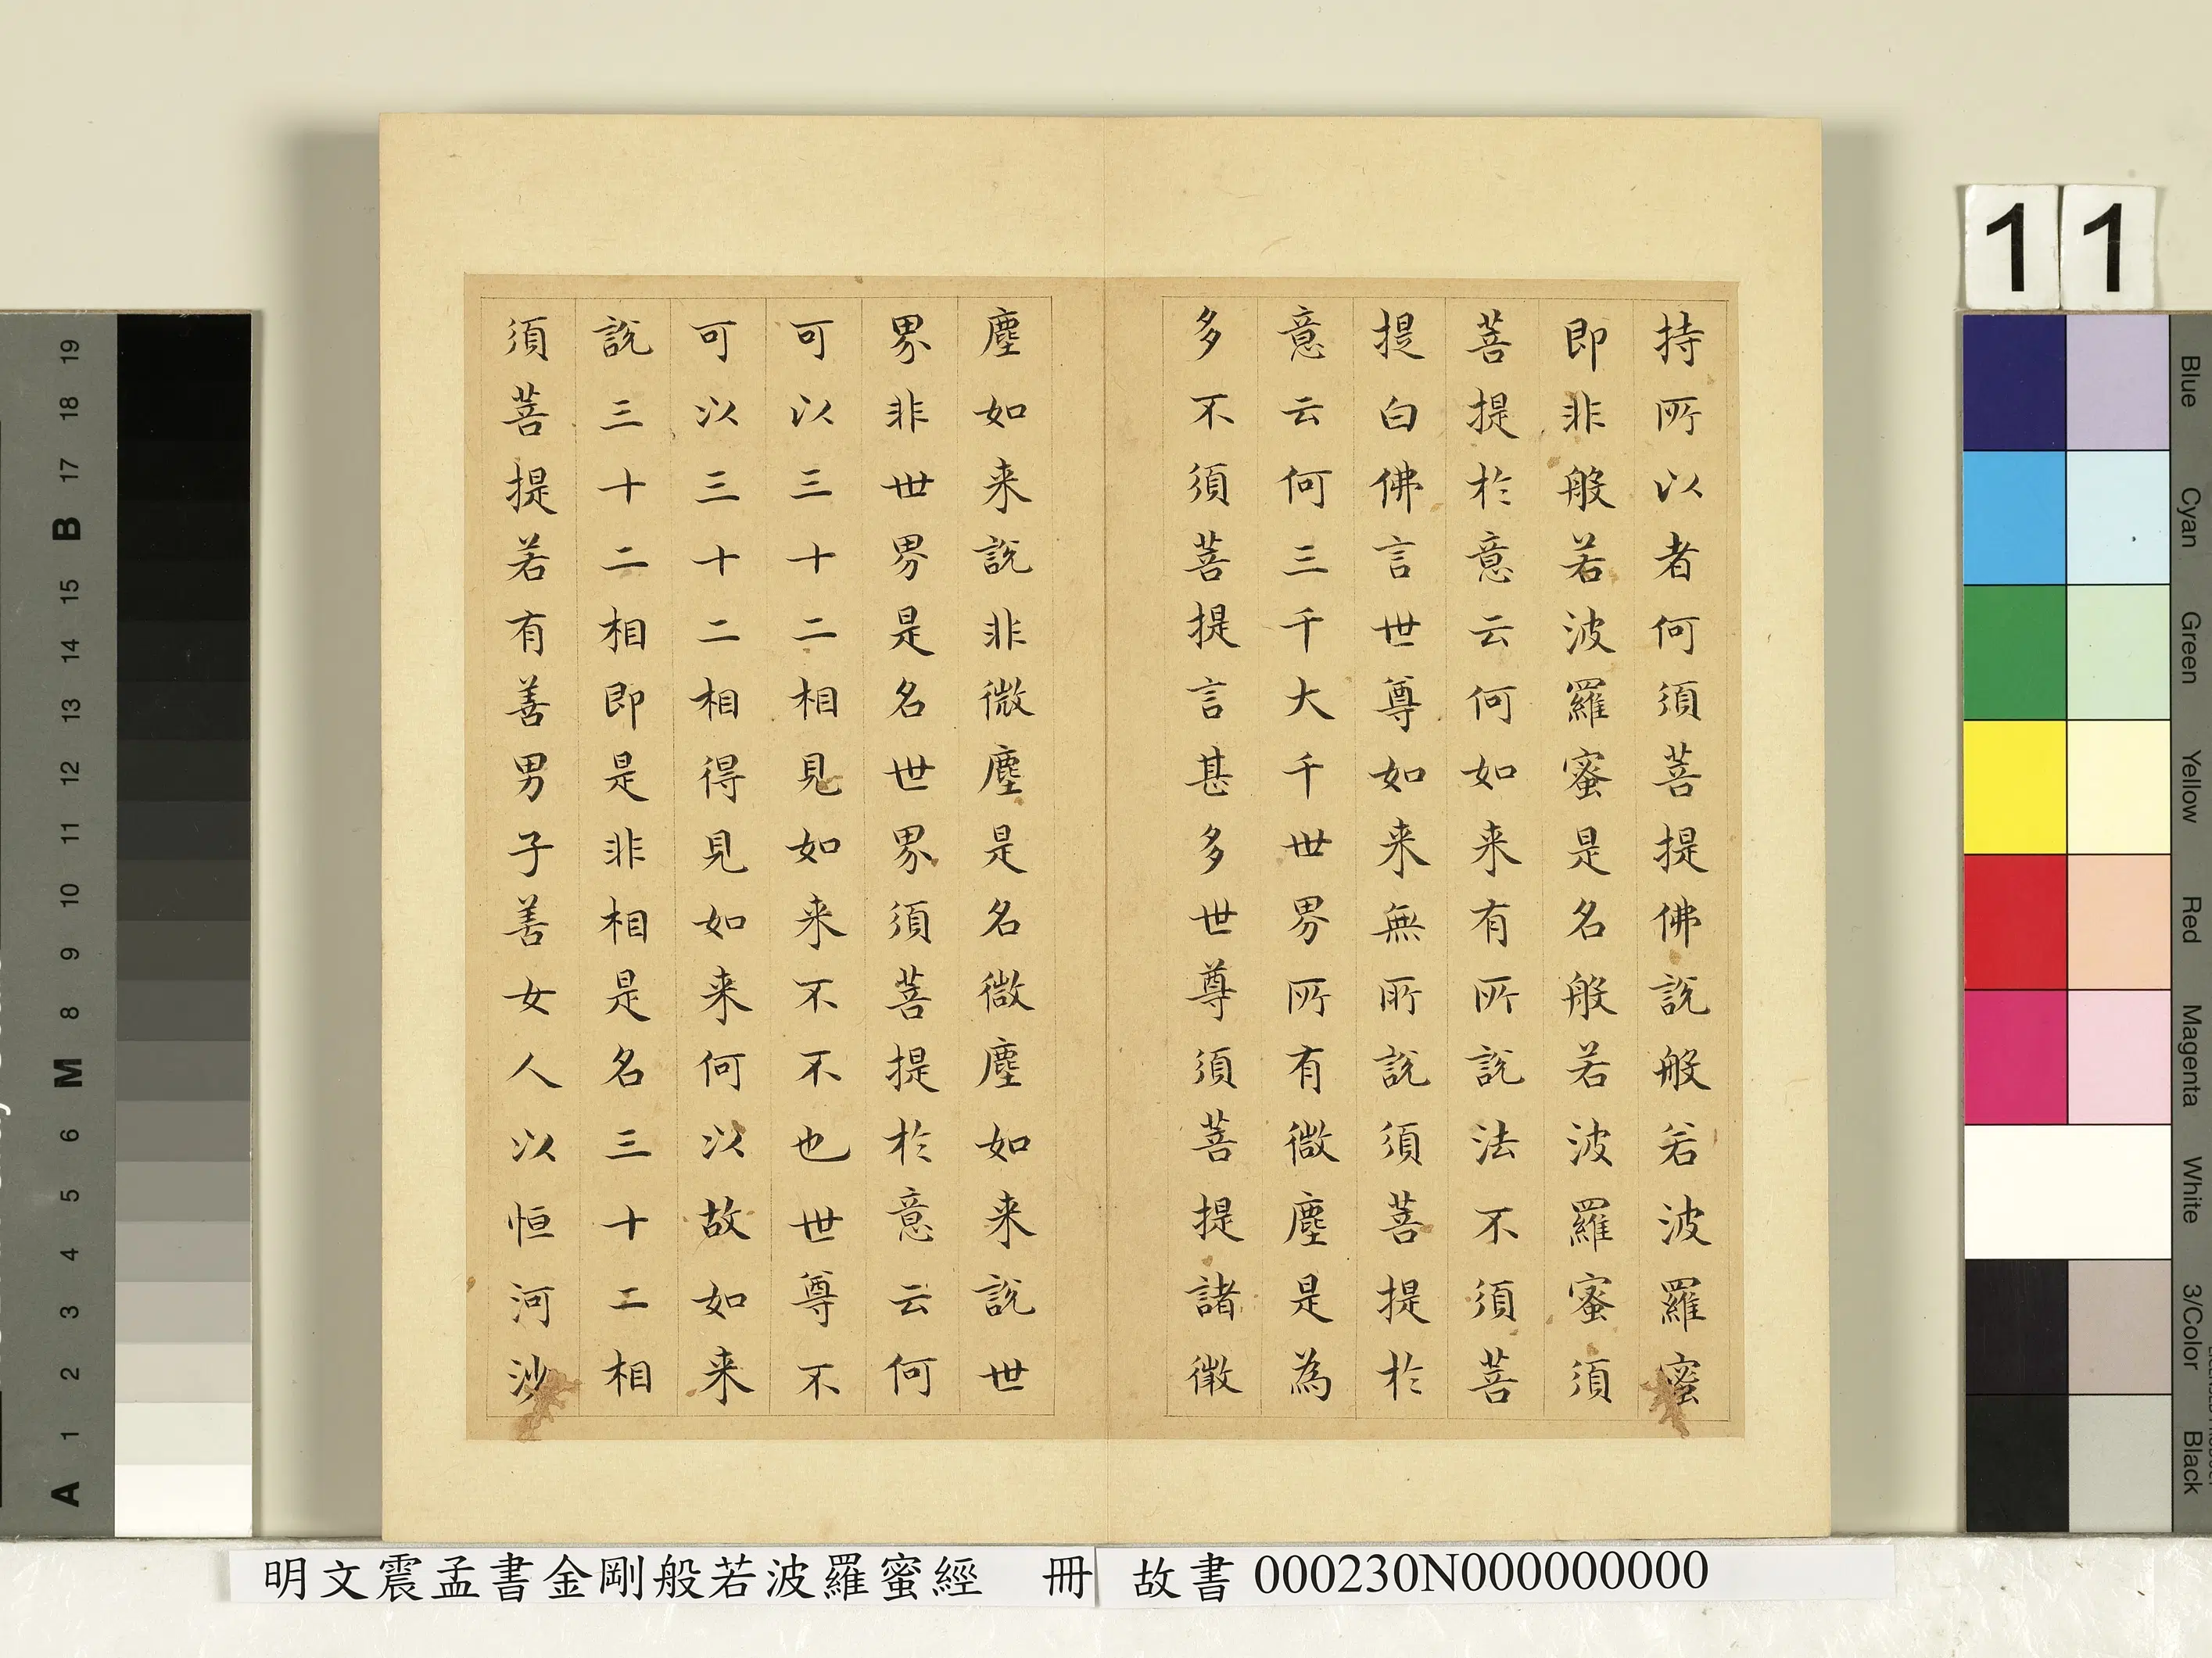 持所以者何須菩提佛說般若波羅蜜
即非般若波羅蜜是名般若波羅蜜須
菩提於意云何如来有所說法不須菩
提白佛言世尊如来無所說須菩提於
意云何三千大千世界所有微塵是為
多不須菩提言甚多世尊須菩提諸微
塵如来說非微塵是名微塵如来說世
界非世界是名世界須菩提於意云何
可以三十二相見如来不不也世尊不
可以三十二相得見如来何以故如来
說三十二相即是非相是名三十二相
須菩提若有善男子善女人以恒河沙
11
19
18
17
B
15
14
13
12
11
10
9
8
M
6
5
4
3
2
1
A
Blue
Cyan
Green
Yellow
Red
Magenta
White
3/Color
Black
明文震孟書金剛般若波羅蜜經 冊 故書 000230N000000000